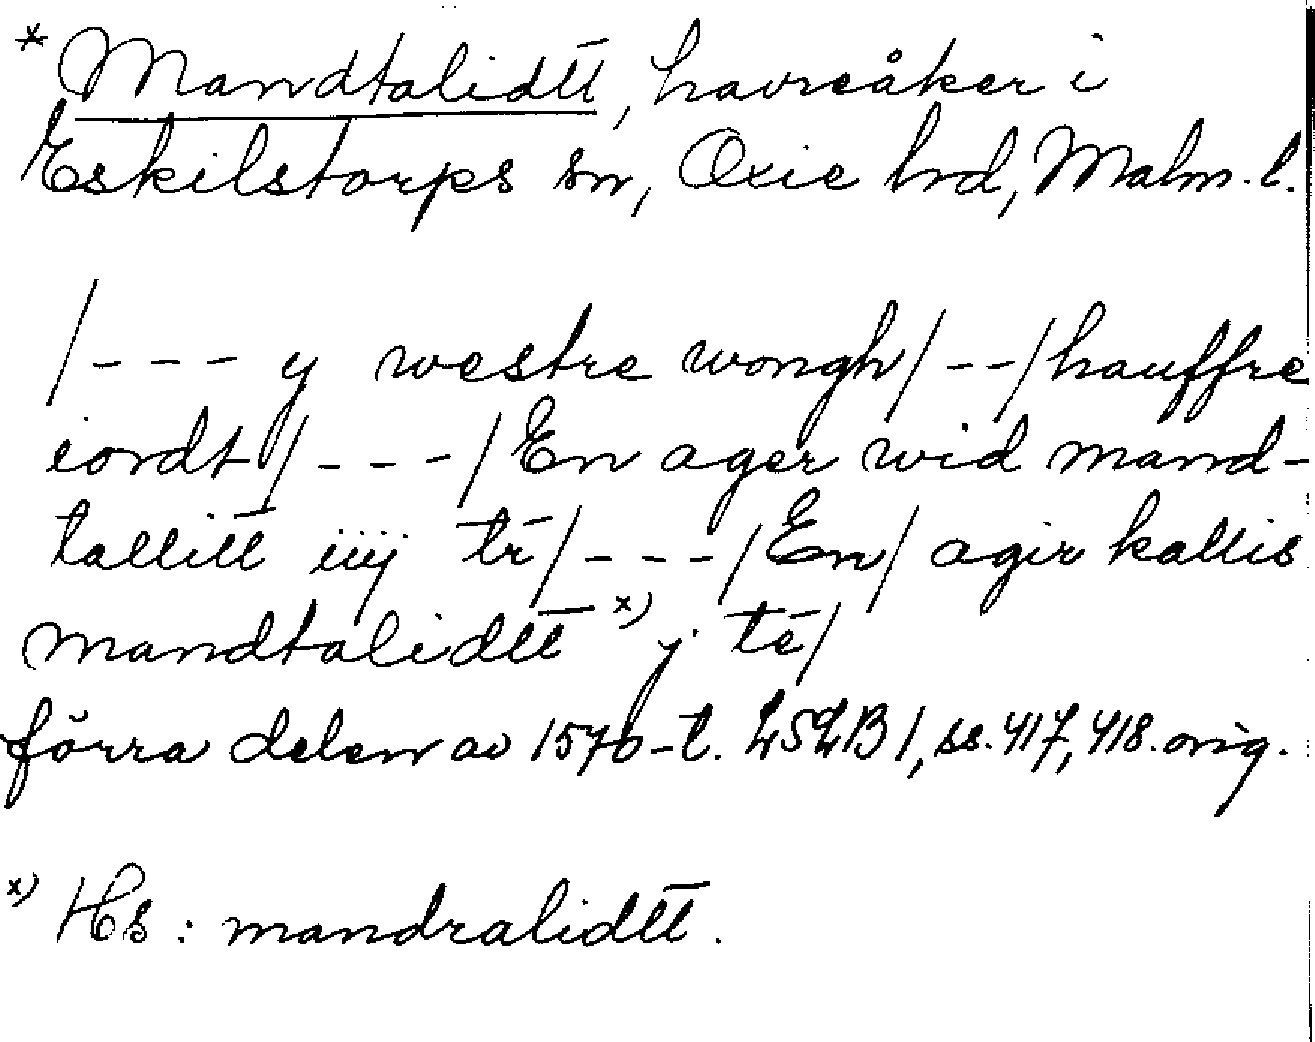 * Mandtalidtt, havreåker i
Eskilstorps sn, Oxie hd, Malm. l.
/--- y westre wongh/--/hauffre
iordt/---/En ager wid mand-
tallitt iiij tr/---/En/ agir kallis
mandtalidtt x) j te/
förra delen av 1570-t. LSLB 1, ss. 417, 418. orig.
x) Hs: mandralidtt.